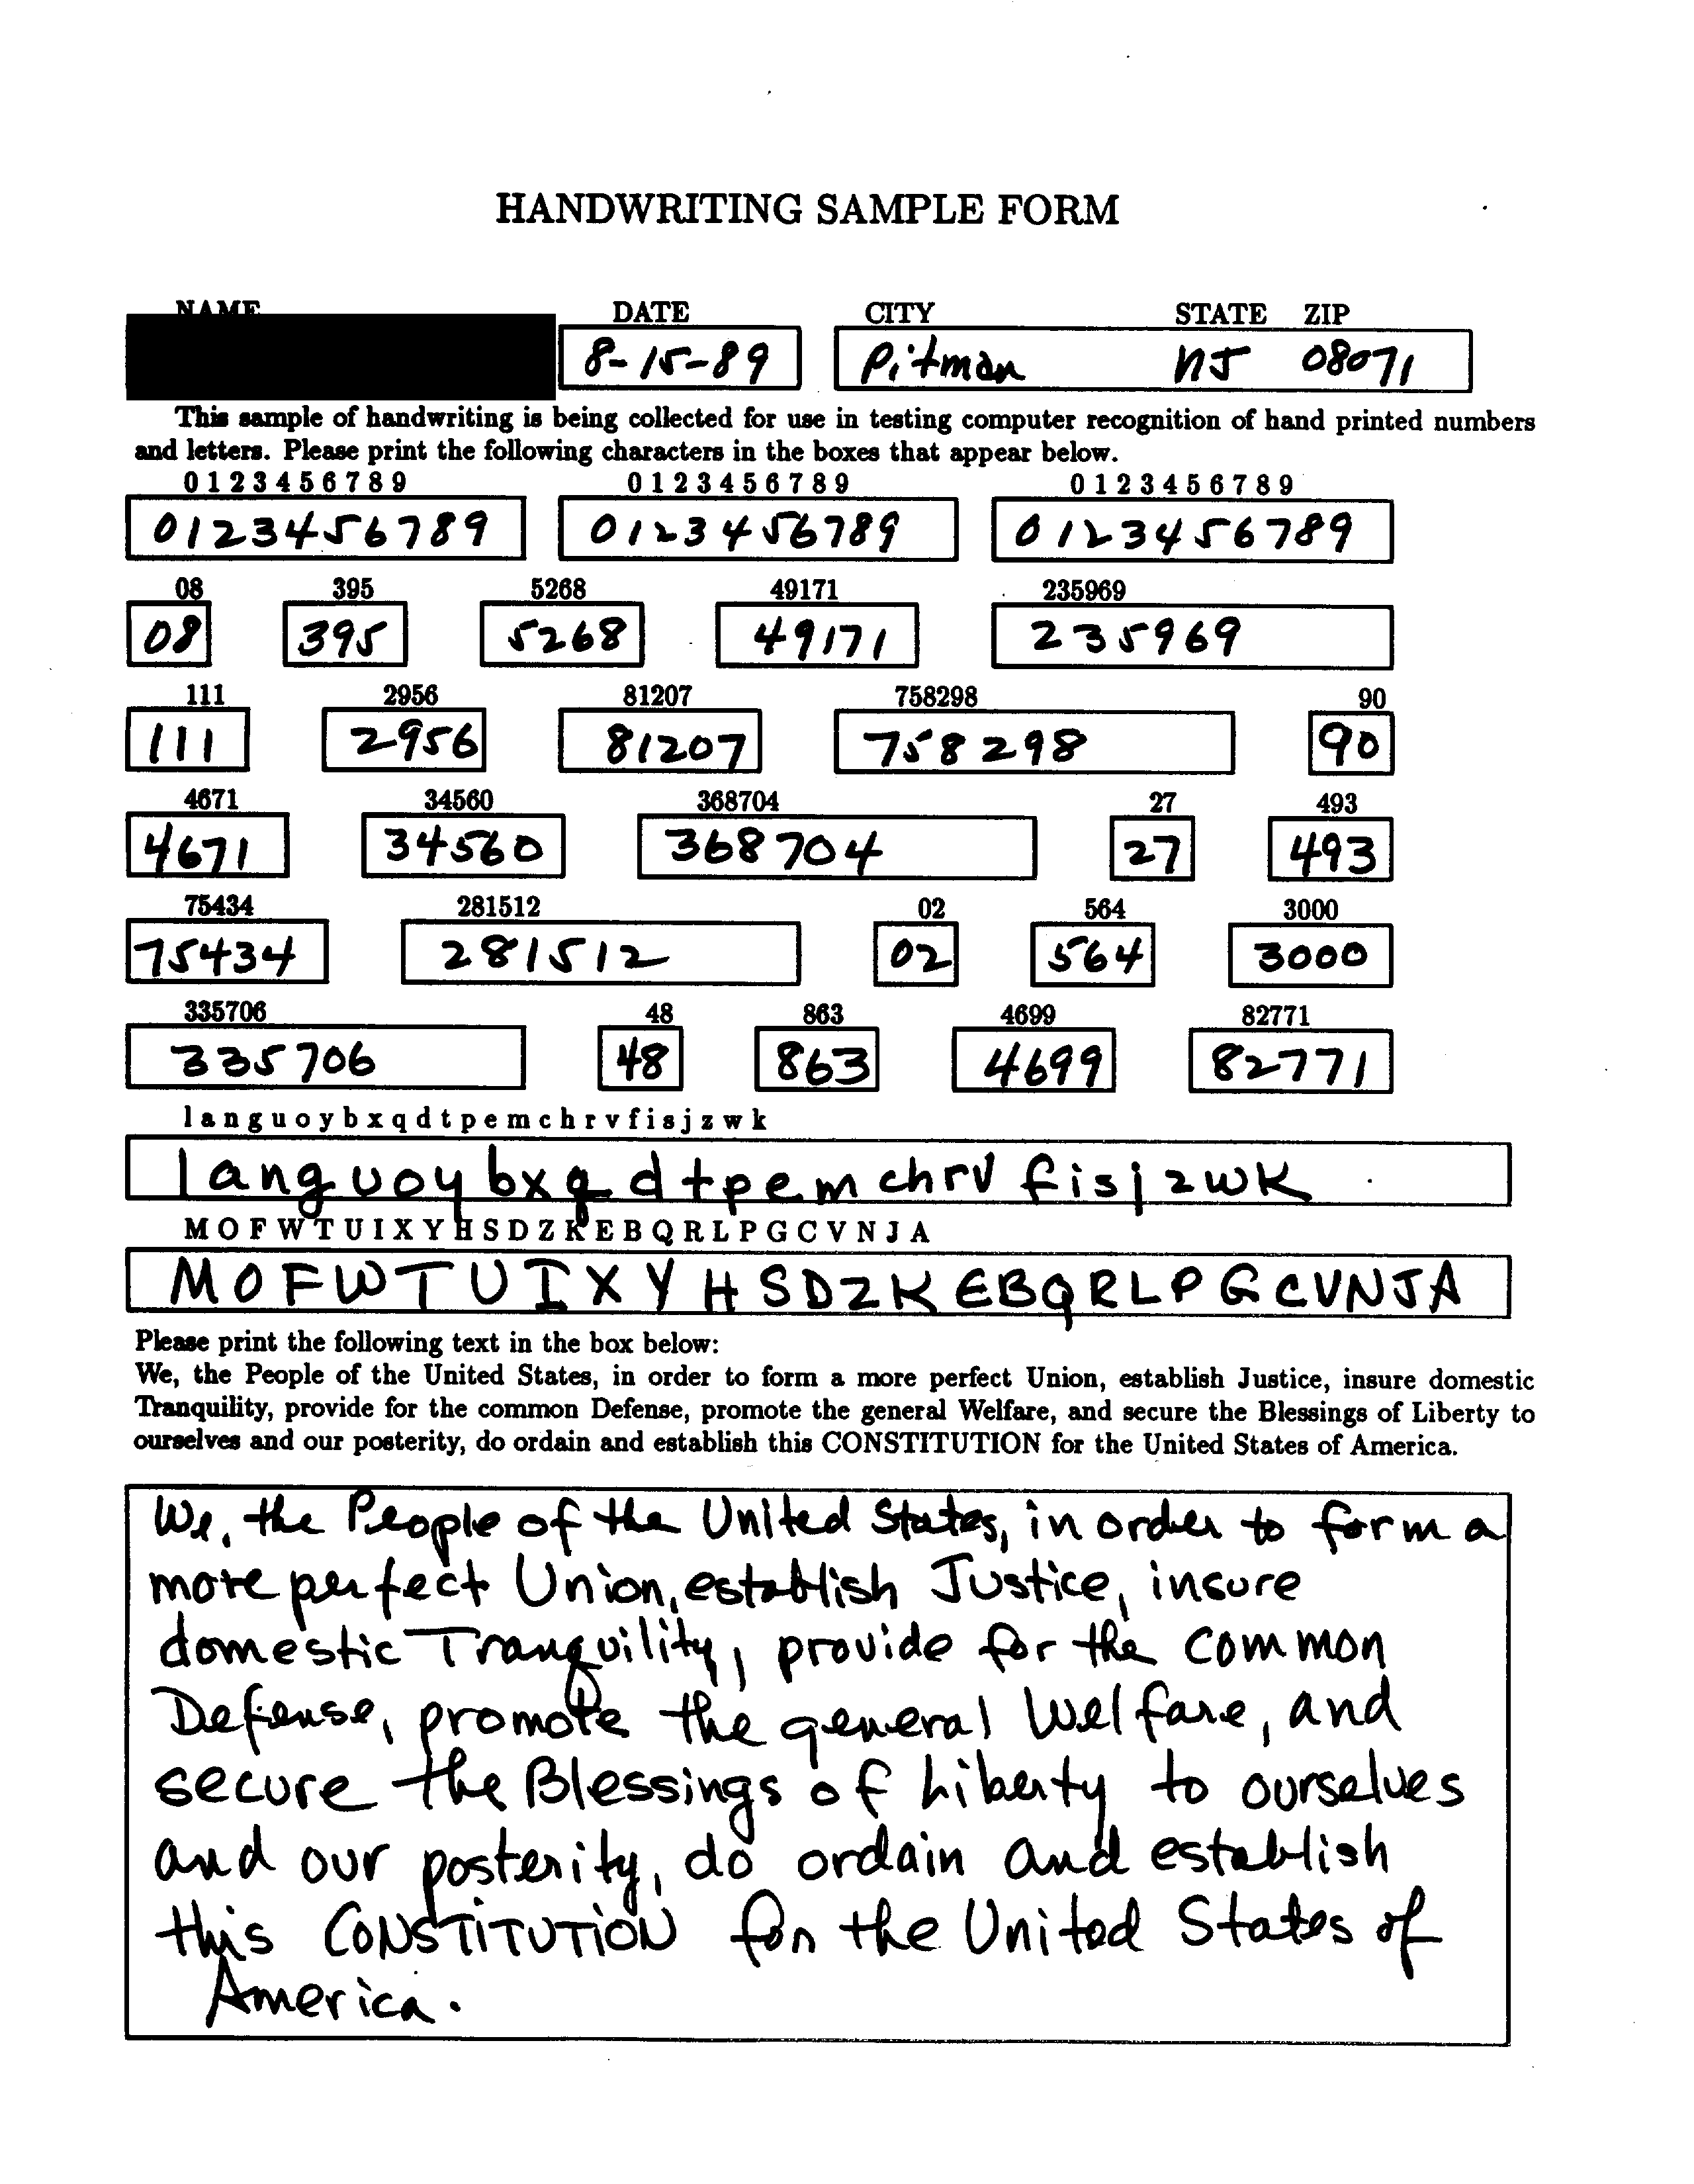 HANDWRITING SAMPLE FORM
NAME DATE CITY STATE ZIP
8-15-89 Pitman NJ 08071
This sample of handwriting is being collected for use in testing computer recognition of hand printed numbers
and letters. Please print the following characters in the boxes that appear below.
0 1 2 3 4 5 6 7 8 9 0 1 2 3 4 5 6 7 8 9 0 1 2 3 4 5 6 7 8 9
0123456789 0123456789 0123456789
08 395 5268 49171 235969
08 395 5268 49171 235969
111 2956 81207 758298 90
111 2956 81207 758298 90
4671 34560 368704 27 493
4671 34560 368704 27 493
75434 281512 02 564 3000
75434 281512 02 564 3000
335706 48 863 4699 82771
335706 48 863 4699 82771
l a n g u o y b x q d t p e m c h r v f i s j z w k
l a n g u o y b x q d t p e m c h r v f i s j z w k
M O F W T U I X Y H S D Z K E B Q R L P G C V N J A
M O F W T U I X Y H S D Z K E B Q R L P G C V N J A
Please print the following text in the box below:
We, the People of the United States, in order to form a more perfect Union, establish Justice, insure domestic
Tranquility, provide for the common Defense, promote the general Welfare, and secure the Blessings of Liberty to
ourselves and our posterity, do ordain and establish this CONSTITUTION for the United States of America.
We, the People of the United States, in order to form a
more perfect Union, establish Justice, insure
domestic Tranquility, provide for the common
Defense, promote the general Welfare, and
secure the Blessings of Liberty to ourselves
and our posterity, do ordain and establish
this CONSTITUTION for the United States of
America.